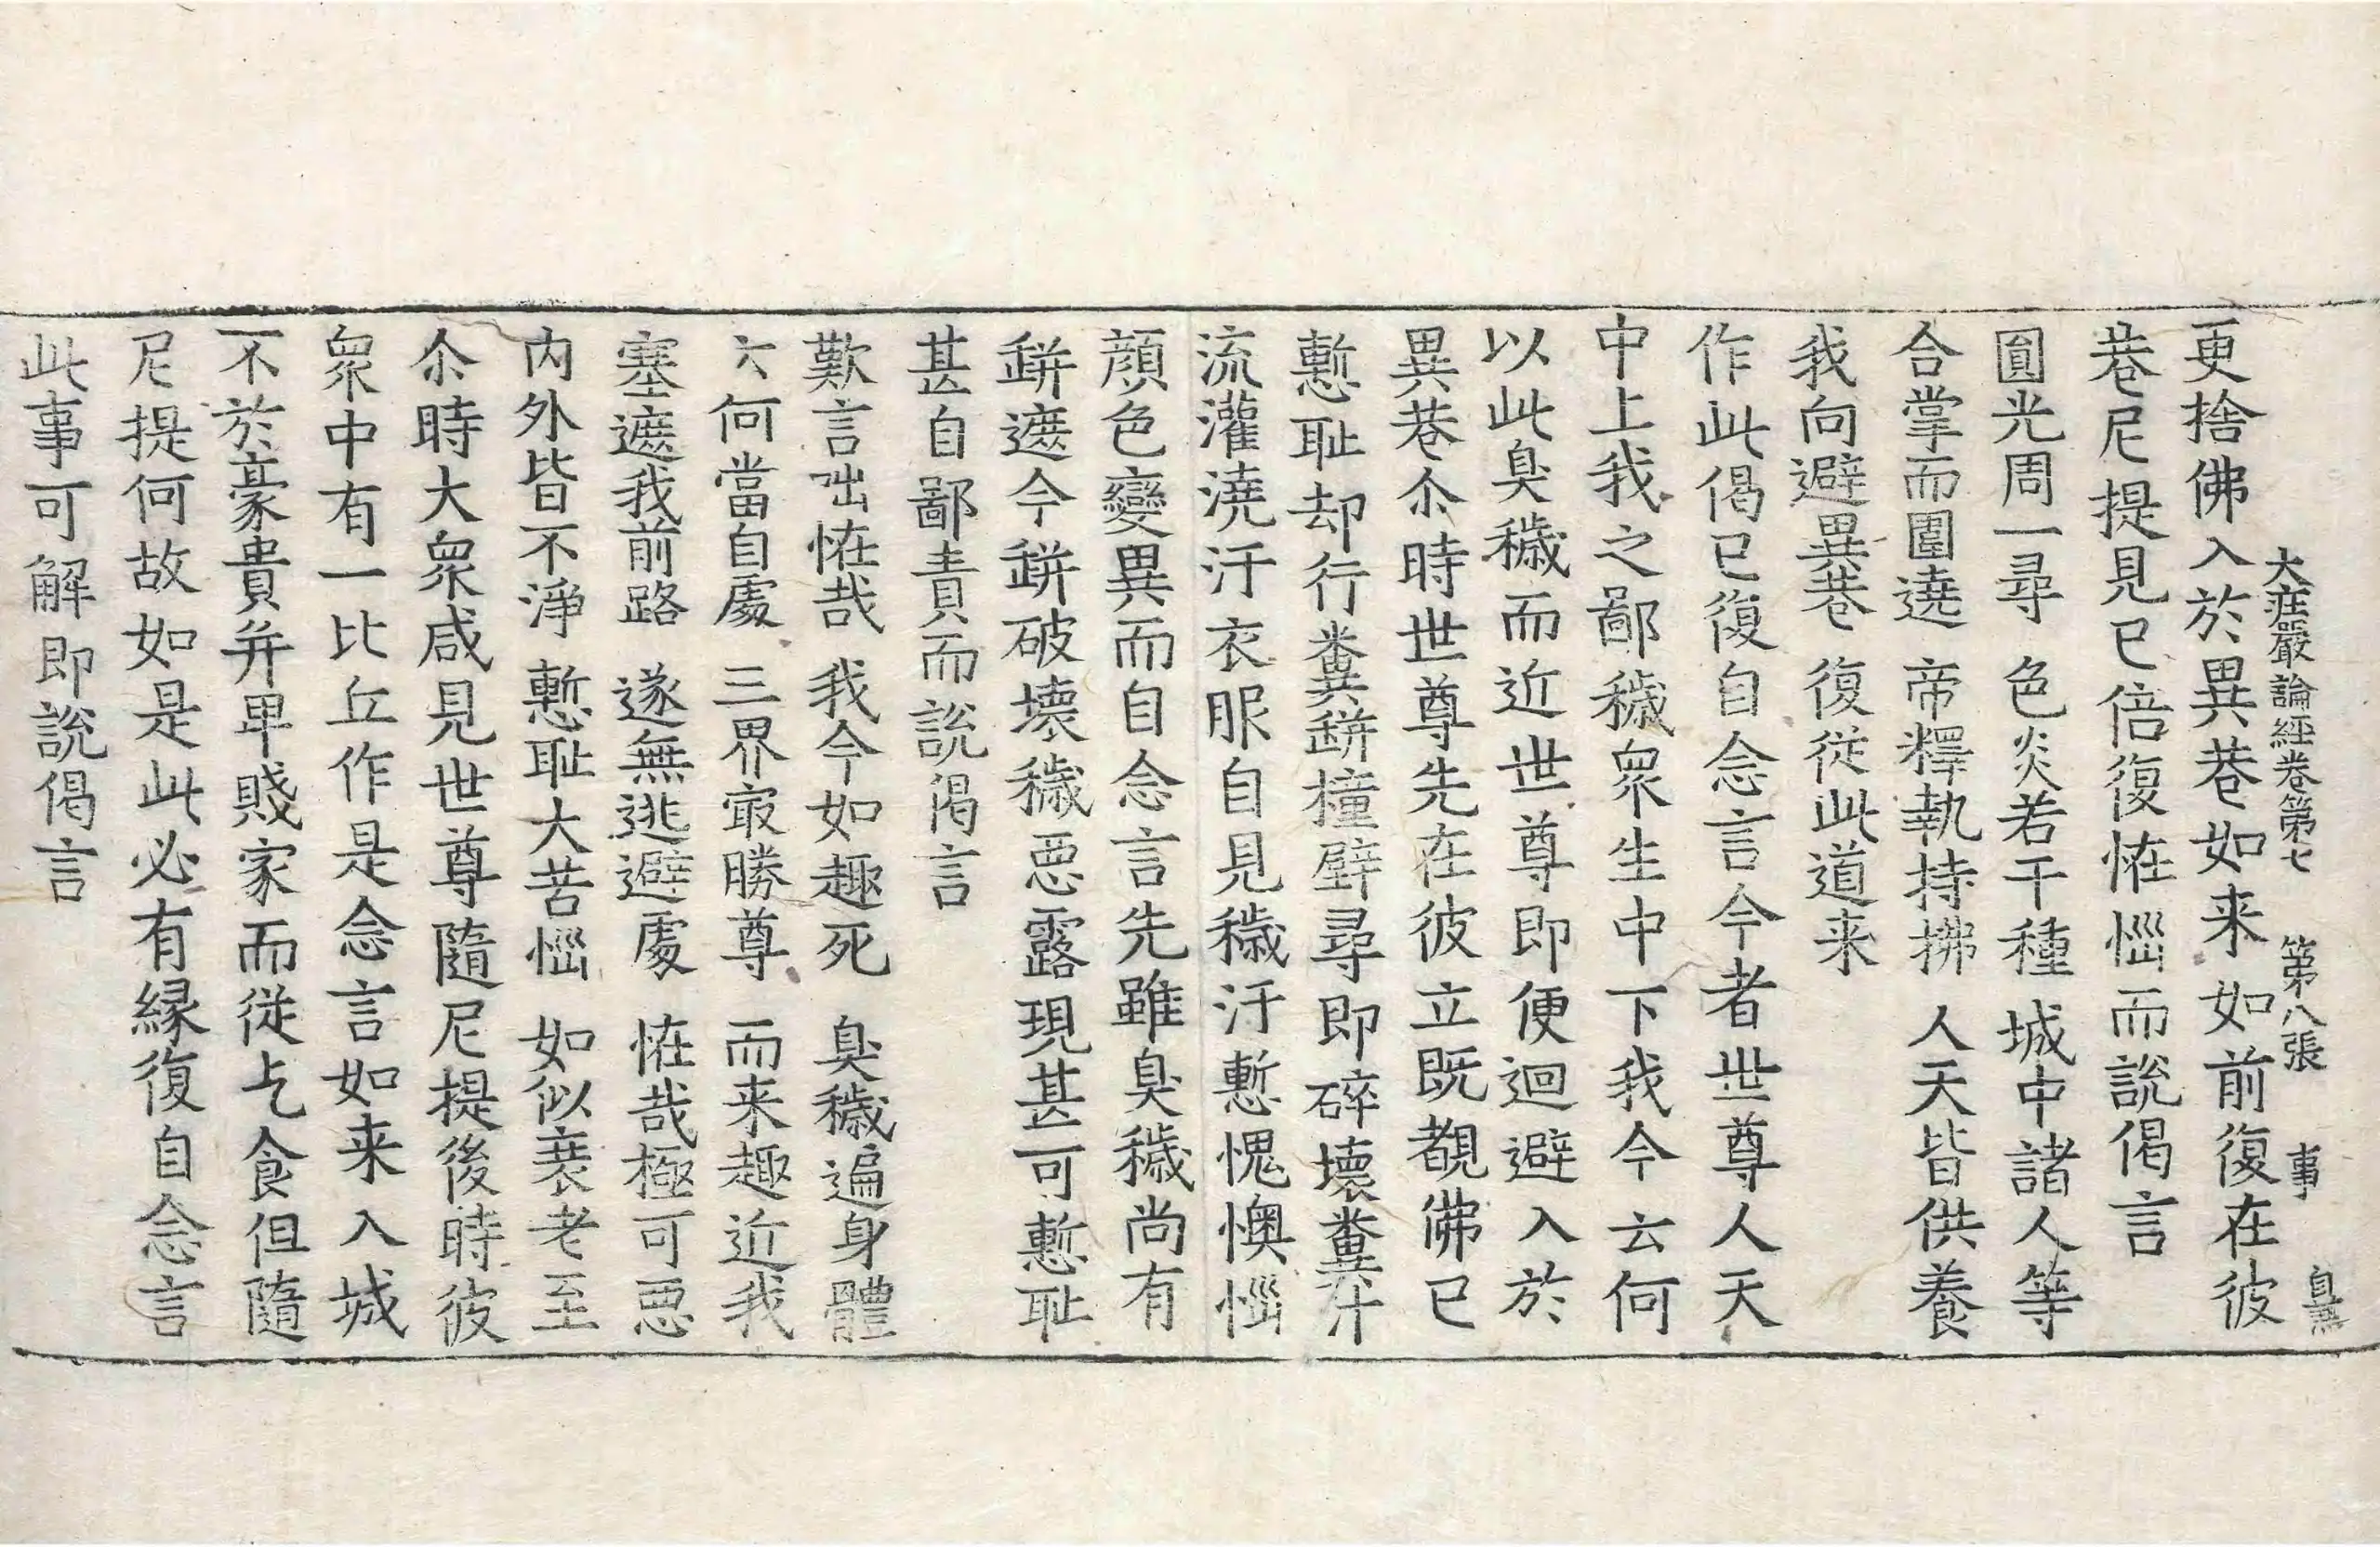 大莊嚴論經卷第七 第八張 事
更捨佛入於異巷如来如前復在彼
巷尼提見已倍復恠惱而說偈言
圓光周一尋 色炎若干種 城中諸人等
合掌而圍遶 帝釋執持拂 人天皆供養
我向避異巷 復従此道来
作此偈已復自念言今者世尊人天
中上我之鄙穢衆生中下我今云何
以此臭穢而近世尊即便迴避入於
異巷尒時世尊先在彼立既覩佛已
慙耻却行糞缾撞壁尋即碎壞糞汁
流灌澆汙衣服自見穢汙慙愧懊惱
顔色變異而自念言先雖臭穢尚有
缾遮今缾破壞穢惡露現甚可慙耻
甚自鄙責而說偈言
歎言咄恠哉 我今如趣死 臭穢遍身體
云何當自處 三界㝡勝尊 而来趣近我
塞遮我前路 遂無逃避處 恠哉極可惡
内外皆不淨 慙耻大苦惱 如似衰老至
尒時大衆咸見世尊隨尼提後時彼
衆中有一比丘作是念言如来入城
不於豪貴并卑賤家而従乞食但隨
尼提何故如是此必有縁復自念言
此事可解即說偈言